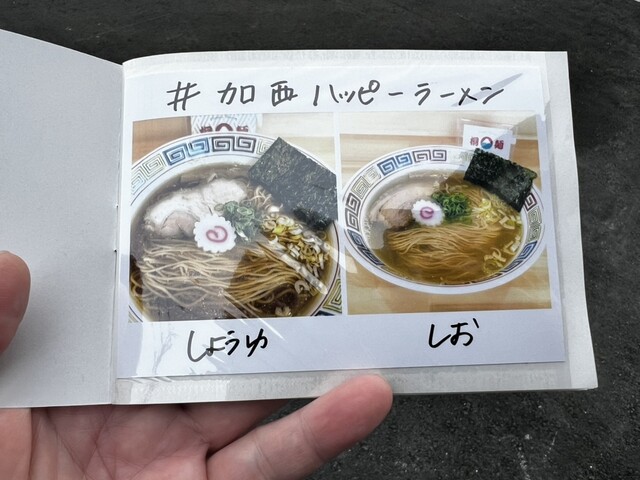 # 加西ハッピーラーメン
桐麺
しょうゆ
しお